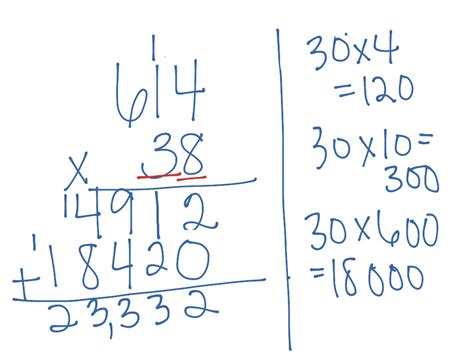 1
614
x 38
14912
1
+18420
23,332
30×4
=120
30×10=
300
30×600
=18000